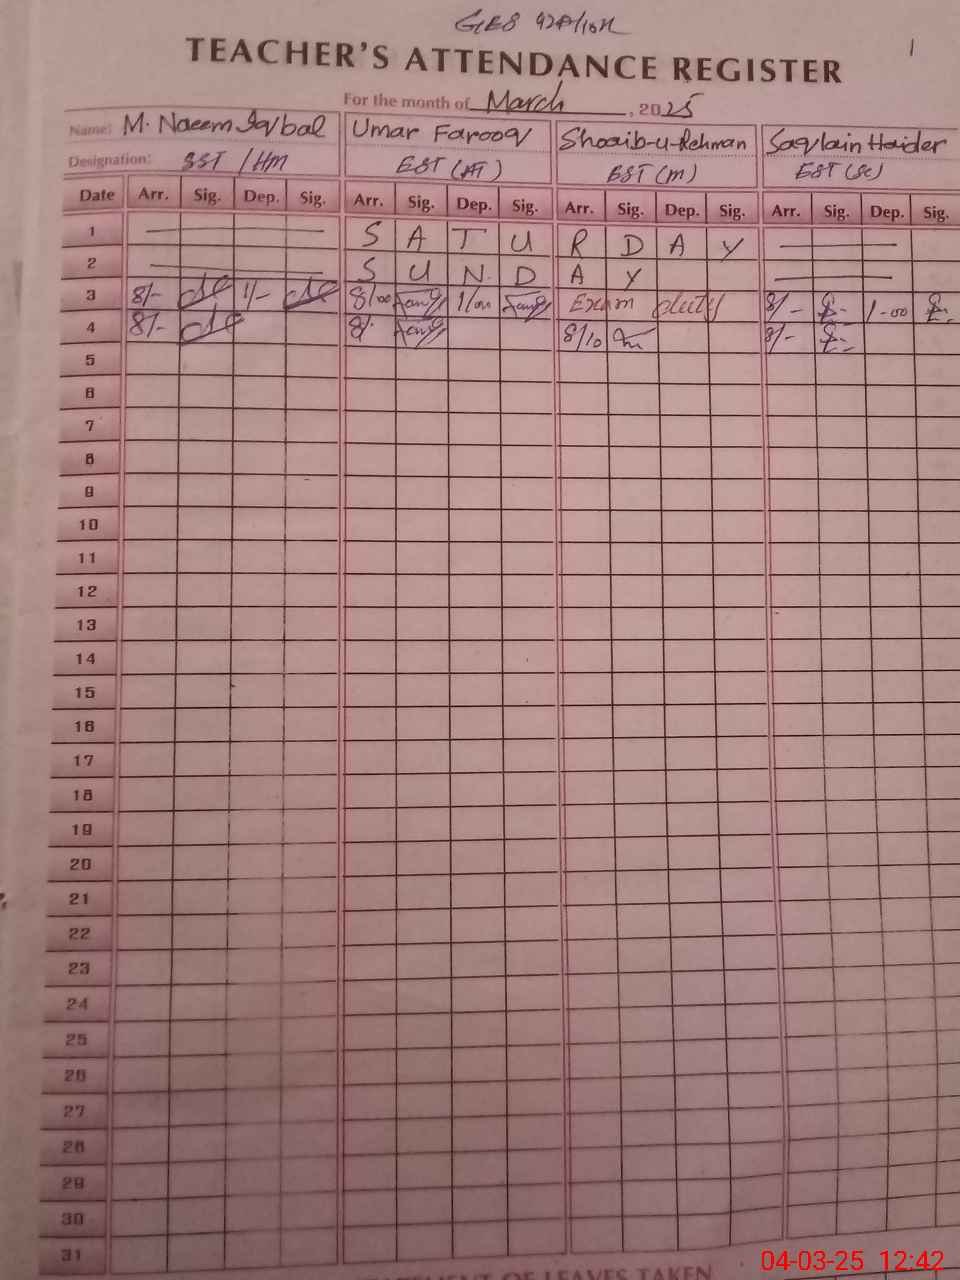 GES 92A/10R
1
TEACHER'S ATTENDANCE REGISTER
For the month of March, 2025
Name: M. Naeem Iqbal Umar Farooq Shoaib-u-Rehman Saqlain Haider
Designation: SST / HM EST (AT) EST (M) EST (Sc)
Date Arr. Sig. Dep. Sig. Arr. Sig. Dep. Sig. Arr. Sig. Dep. Sig. Arr. Sig. Dep. Sig.
1 S A T U R D A Y
2 S U N D A Y
3 8/- 1/- 8/00 1/00 Exam duty 8/- 1-00
4 8/- 8/- 8/10 8/-
5
6
7
8
9
10
11
12
13
14
15
16
17
18
19
20
21
22
23
24
25
26
27
28
29
30
31
OF LEAVES TAKEN
04-03-25 12:42